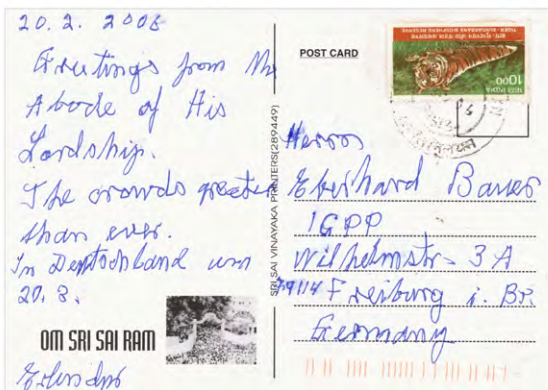 20.2. 2006
Greetings from the
Abode of His
Lordship.
The crowds greater
than ever.
In Deutschland um
20.3.
OM SRI SAI RAM
Erlendur
SRI SAI VINAYAKA PRINTERS(289449)
POST CARD
भारत INDIA
1000
Herrn
Eberhard Bauer
IGPP
Wilhelmstr. 3A
79114 Freiburg i. Br.
Germany